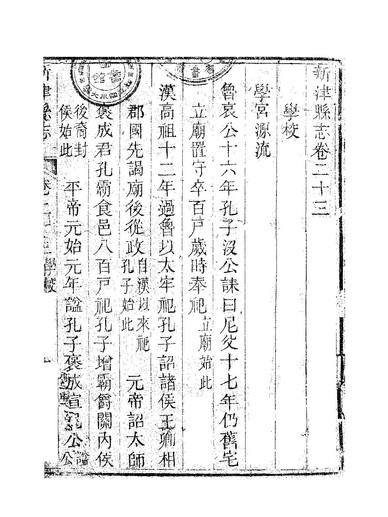 新津縣志卷二十三
學校
學宮源流
魯哀公十六年孔子沒公誄曰尼父十七年仍舊宅
立廟置守卒百戶歲時奉祀立廟始此
漢高祖十二年過魯以太牢祀孔子詔諸侯王卿相
郡國先謁廟後從政自漢以來祀孔子始此 元帝詔太師
褒成君孔霸食邑八百戶祀孔子增霸爵關內侯
後裔封侯始此 平帝元始元年諡孔子褒成宣尼公
新津縣志 卷二十三學校 一